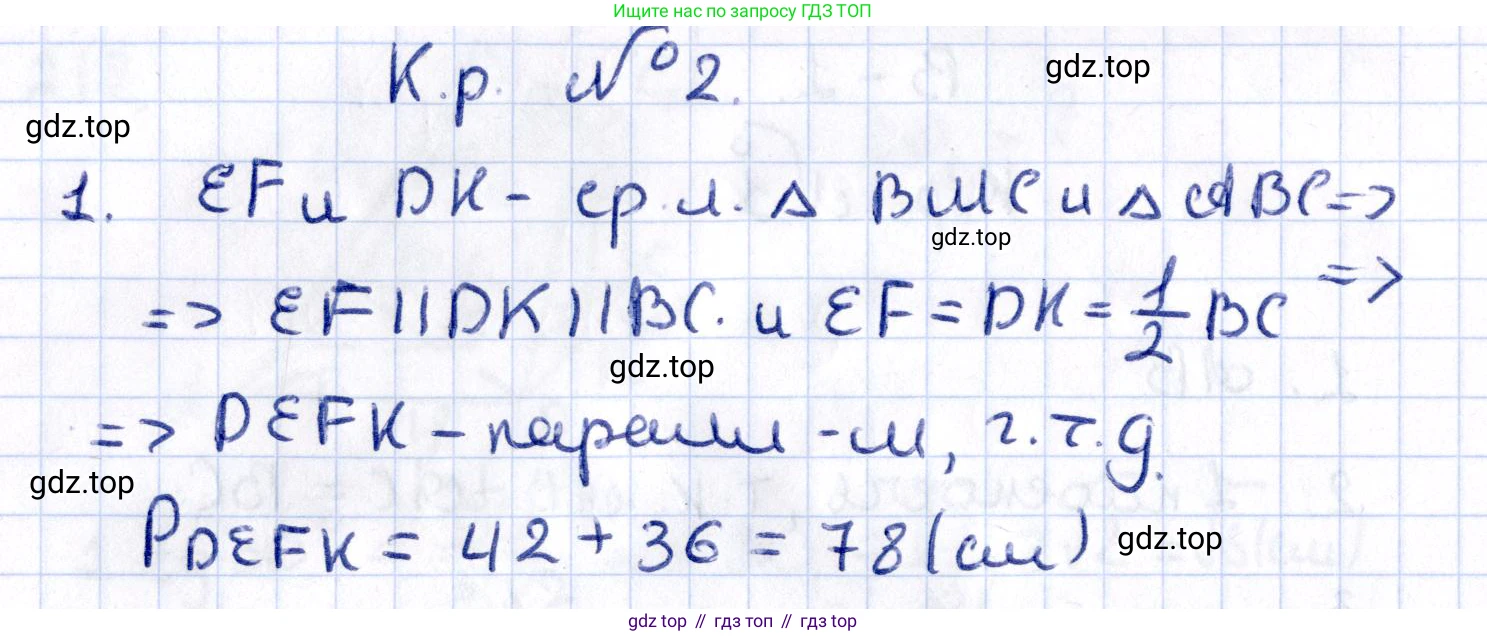 Ищите нас по запросу ГДЗ ТОП
К.р. №2.
gdz.top
gdz.top
1. EF и DK - ср.л. Δ BMC и Δ ABC =>
gdz.top
=> EF || DK || BC. и EF = DK = 1/2 BC =>
gdz.top
=> DEFK - паралл-м, ч.т.д.
gdz.top
P DEFK = 42 + 36 = 78 (см)
gdz.top
gdz top // гдз топ // гдз top